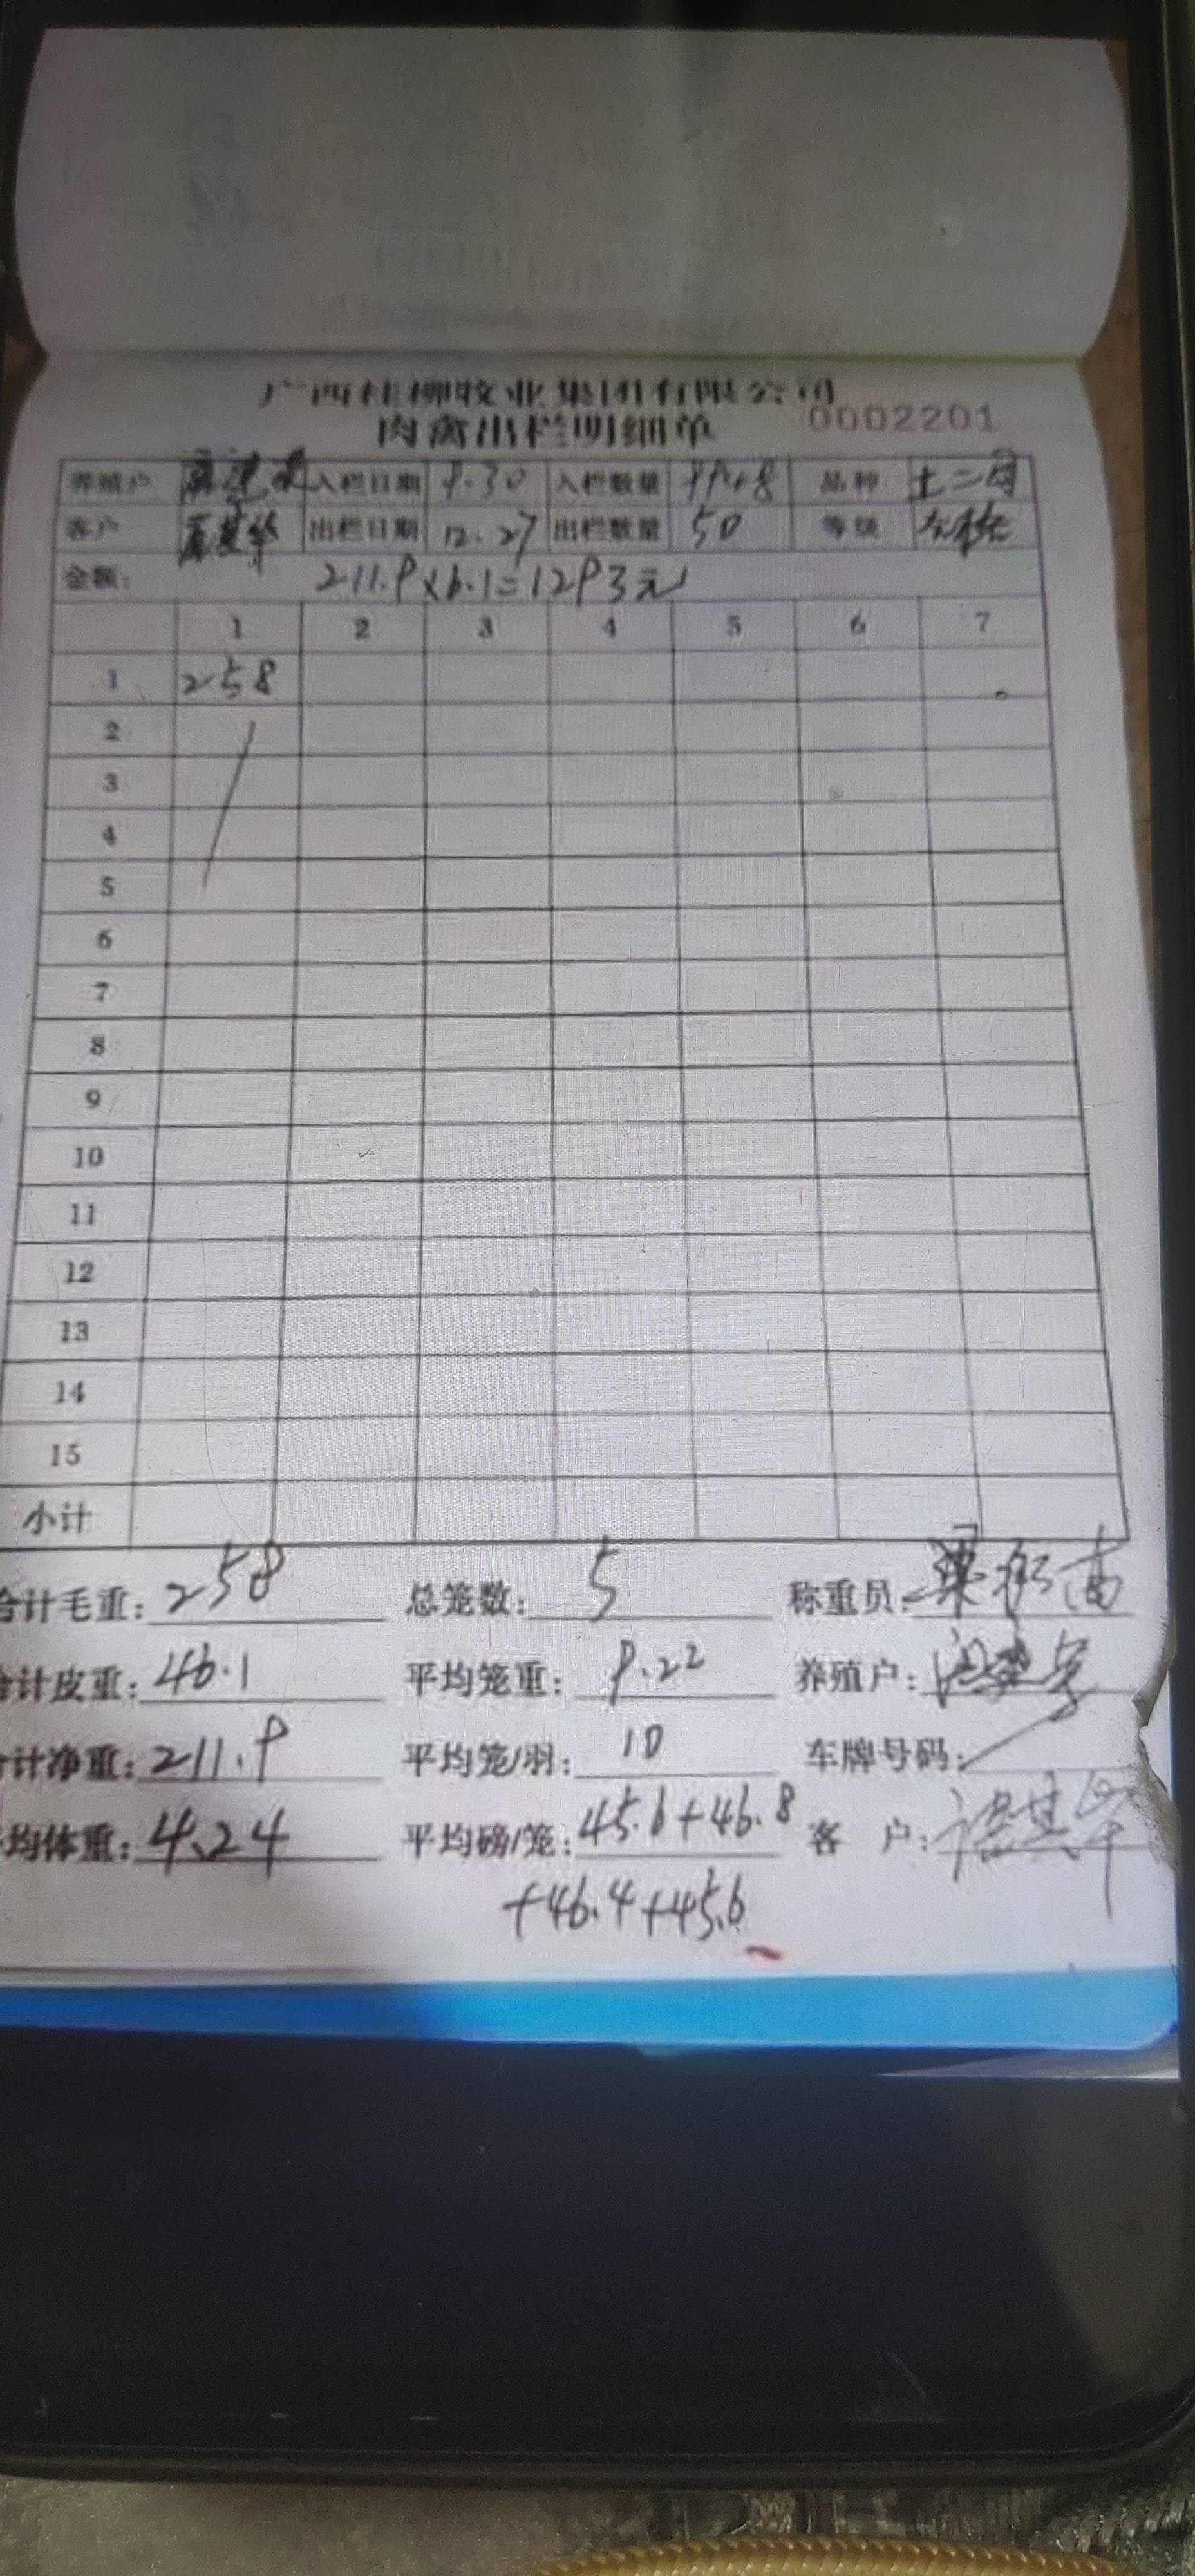 广西桂柳牧业集团有限公司
肉禽出栏明细单 0002201
养殖户 入栏日期 9.30 入栏数量 品种 土二
客户 出栏日期 12.27 出栏数量 50 等级
金额: 211.9×6.1=1293元
1 2 3 4 5 6 7
1 258
2
3
4
5
6
7
8
9
10
11
12
13
14
15
小计
合计毛重: 258 总笼数: 5 称重员:
计皮重: 46.1 平均笼重: 9.22 养殖户:
计净重: 211.9 平均笼/羽: 10 车牌号码:
均体重: 4.24 平均磅/笼: 45.6+46.8 客 户:
+46.4+45.6